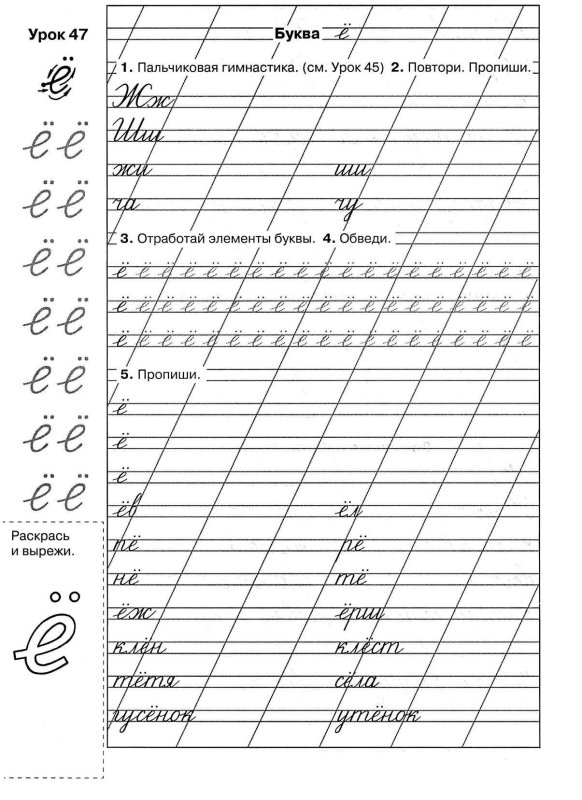 Урок 47
Буква ё
ё
1. Пальчиковая гимнастика. (см. Урок 45) 2. Повтори. Пропиши.
Жж
Шш
жи ши
ча чу
ё ё
ё ё
ё ё
ё ё
ё ё
ё ё
ё ё
3. Отработай элементы буквы. 4. Обведи.
ё ё ё ё ё ё ё ё ё ё ё ё ё ё ё ё ё ё
ё ё ё ё ё ё ё ё ё ё ё ё ё ё ё ё ё ё
ё ё ё ё ё ё ё ё ё ё ё ё ё ё ё ё ё ё
5. Пропиши.
ё
ё
ё
ёв ёл
пё рё
нё тё
ёж ёрш
клён клёст
тётя сёла
гусёнок утёнок
Раскрась
и вырежи.
ё